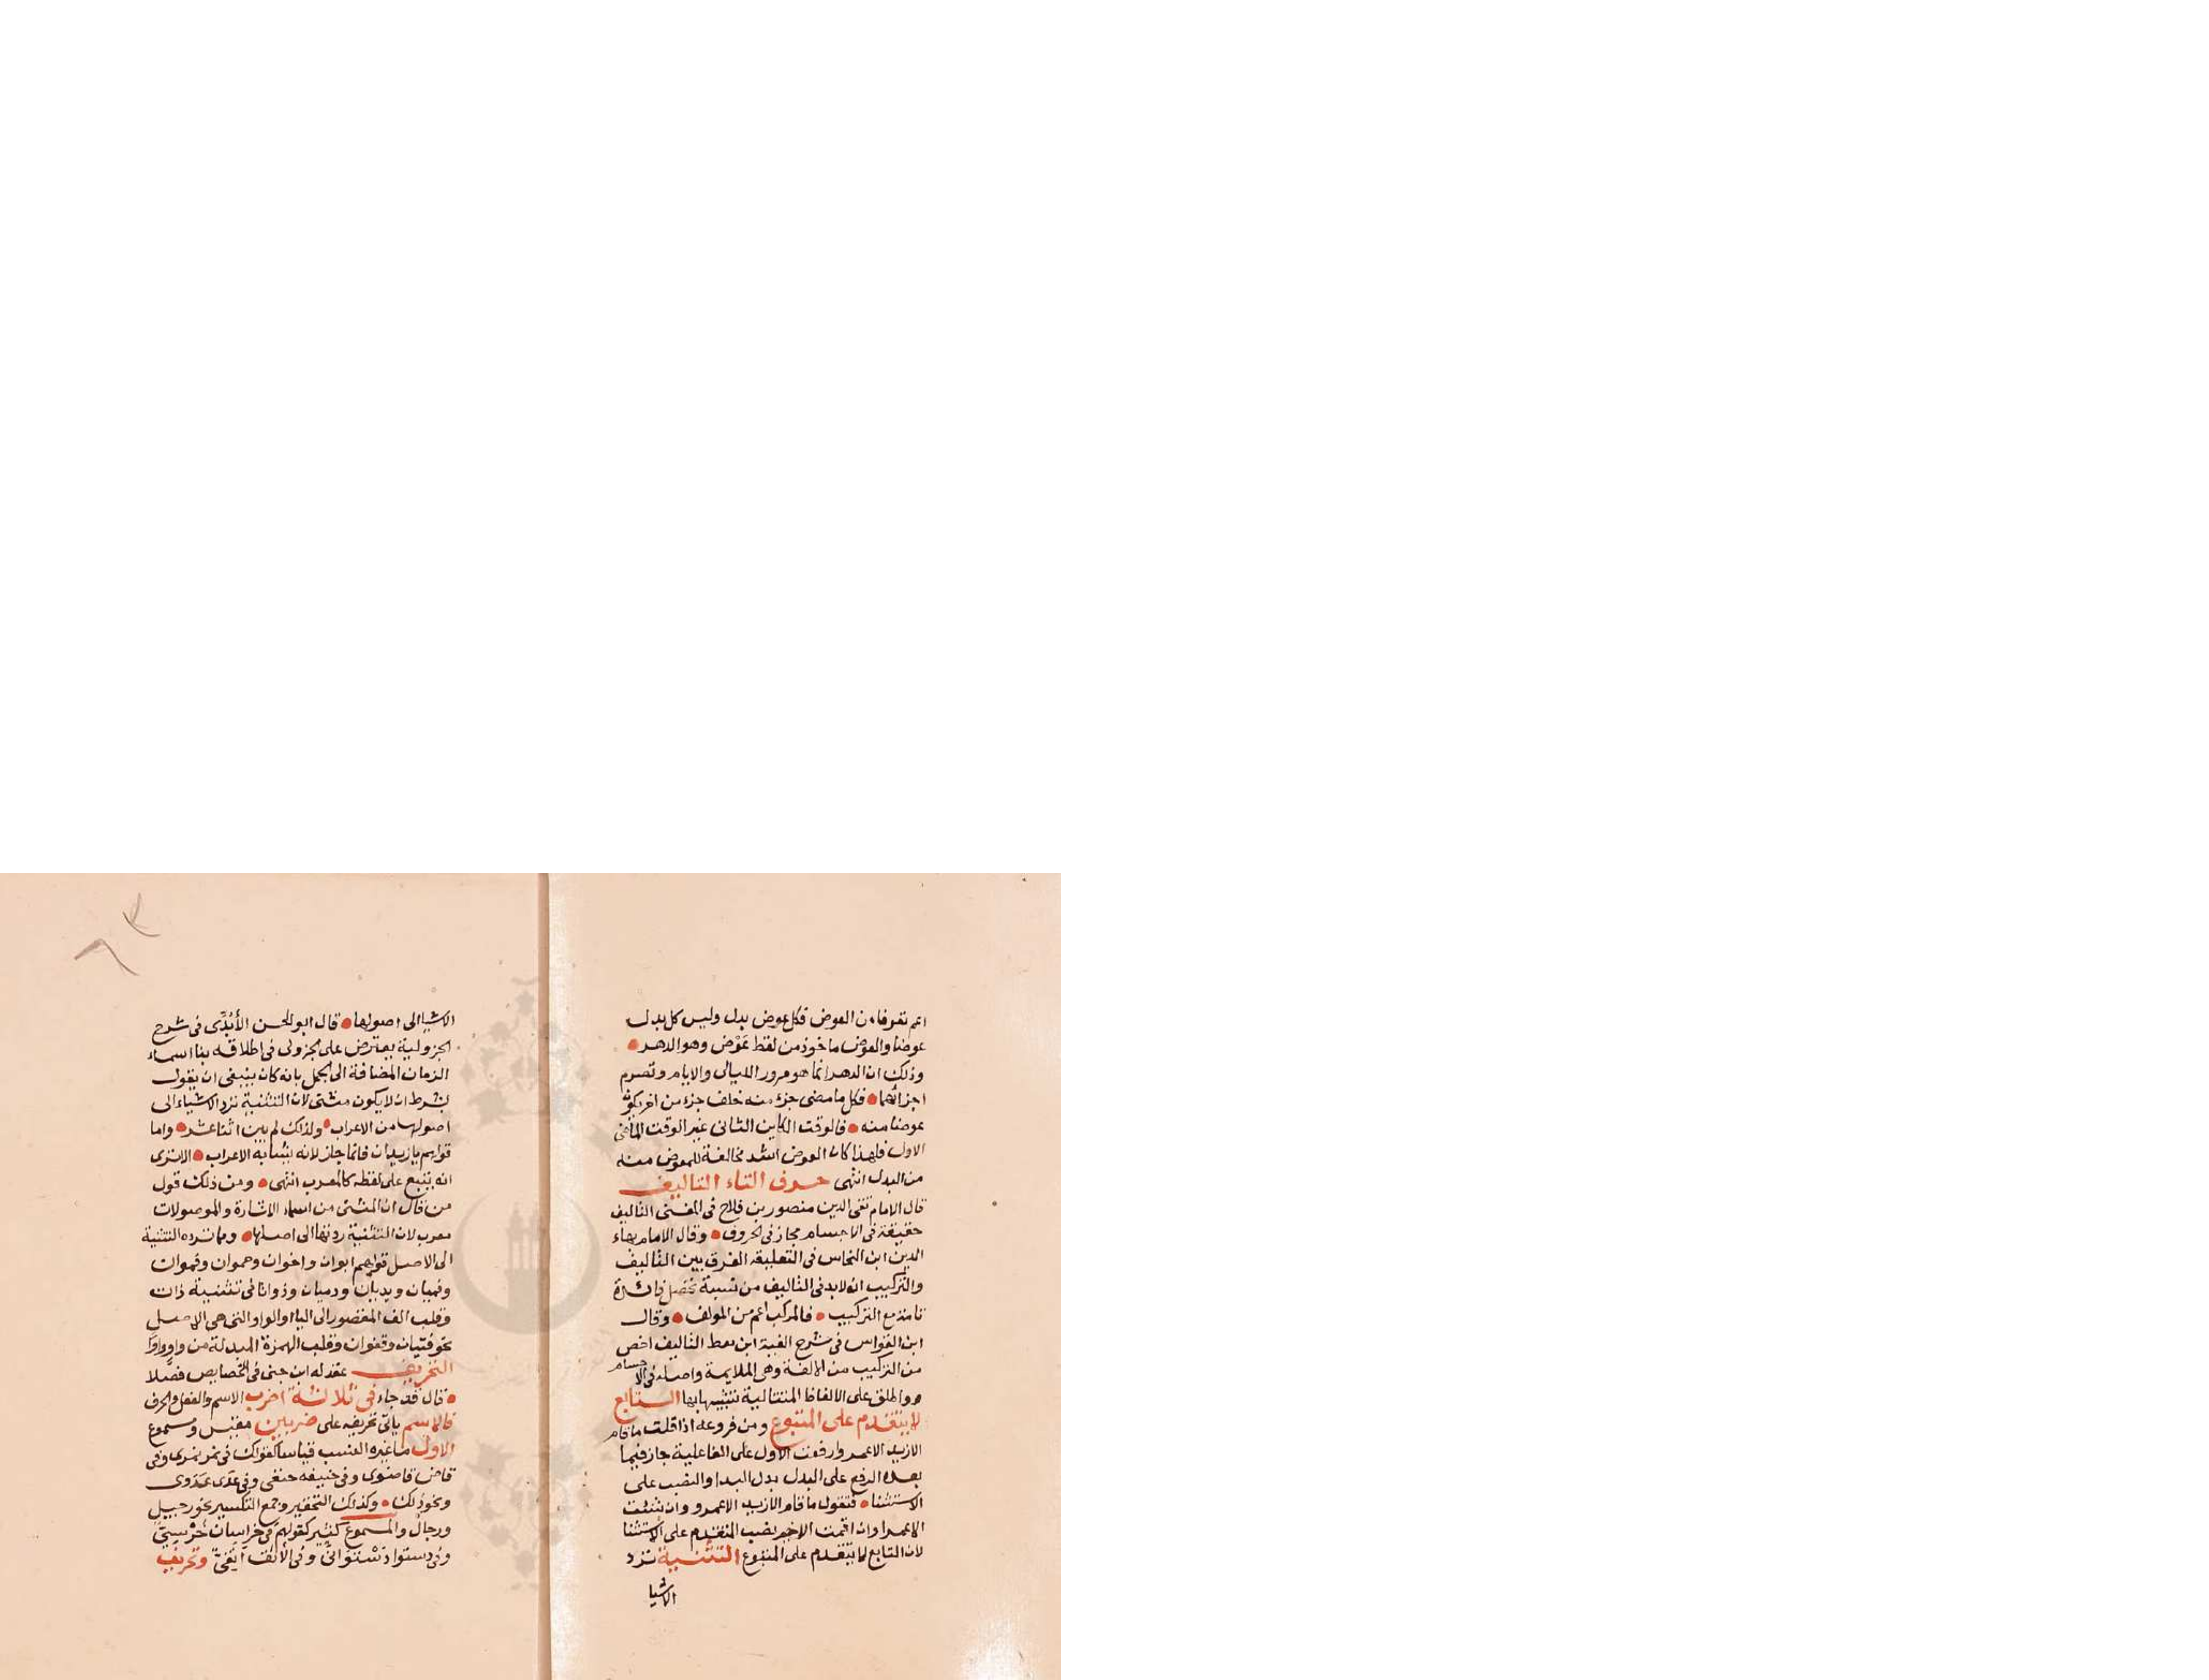 اعم تصرفا من العوض فكل عوض بدل وليس كل بدل
عوضا والعوض ماخوذ من لفظ عَوْض وهو الدهر
وذلك ان الدهر انما هو مرور الليالى والايام وتصرم
اجزائهما فكل ما مضى جزء منه خلف جزء من اخر يكون
عوضا منه فالوقت الكاين الثانى غير الوقت الماضى
الاول فلهذا كان العوض اشد مخالفة للمعوض منه
من البدل انتهى حرف التاء التاليف
قال الامام تقى الدين منصور بن فلاح فى المغنى التاليف
حقيقة فى الاجسام مجاز فى الحروف وقال الامام بهاء
الدين ابن النحاس فى التعليقه الفرق بين التاليف
والتركيب ان لابد فى التاليف من نسبة تحصل فائدة
تامة مع التركيب فالمركب اعم من المولف وقال
ابن القواس فى شرح الفية ابن معط التاليف اخص
من التركيب من الالفة وهى الملايمة واصله فى الاجسام
واطلق على الالفاظ المتتالية تشبيها بها التابع
لا يتقدم على المتبوع ومن فروعه اذا قلت ما قام
الا زيد الا عمر وارفعت الاول على الفاعلية جاز فيما
بعده الرفع على البدل بدل البدا والنصب على
الاستثنا فتقول ما قام الا زيد الا عمرو وان شئت
الا عمرا وان اقمت الاخير نصب المتقدم على الاستثنا
لان التابع لا يتقدم على المتبوع التثنية ترد
الاشيا
الاشيا الى اصولها قال ابو الحسن الأبَّدى فى شرح
الجزولية يعترض على الجزولى فى اطلاقه بنا اسماء
الزمان المضافة الى الجمل بانه كان ينبغى ان يقول
بشرط ان لا يكون مثنى لان التثنية ترد الاشياء الى
اصولها من الاعراب ولذلك لم يبن اثنا عشر واما
قولهم يا زيدان فانما جاز لانه بنا يشابه الاعراب الا ترى
انه يتبع على لفظه كالمعرب انتهى ومن ذلك قول
من قال ان المثنى من اسماء الاشارة والموصولات
معرب لان التثنية ردتها الى اصلها ومما ترده التثنية
الى الاصل قولهم ابوان واخوان وحموان وفموان
وفميان ويديان ودميان وذواتا فى تثنية ذات
وقلب الف المقصور الى اليا او الواو التى هى الاصل
نحو فتيان وقفوان وقلب الهمزة المبدلة من واو واوا
التحريف عقد له ابن جنى فى الخصايص فصلا
قال قد جاء فى ثلاثة اضرب الاسم والفعل والحرف
فالاسم ياتى تحريفه على ضربين مقيس ومسموع
الاول ما غيره النسب قياسا كقولك فى نمر نمرى وفى
قاض قاضوى وفى حنيفه حنفى وفى عدى عدوى
ونحو ذلك وكذلك التحقير وجمع التكسير نحو رجيل
ورجال والمسموع كثير كقولهم فى خراسان خُرْسِىّ
وفى دستوا دَسْتَوَانىّ وفى الأنف أنفىّ وتحريف